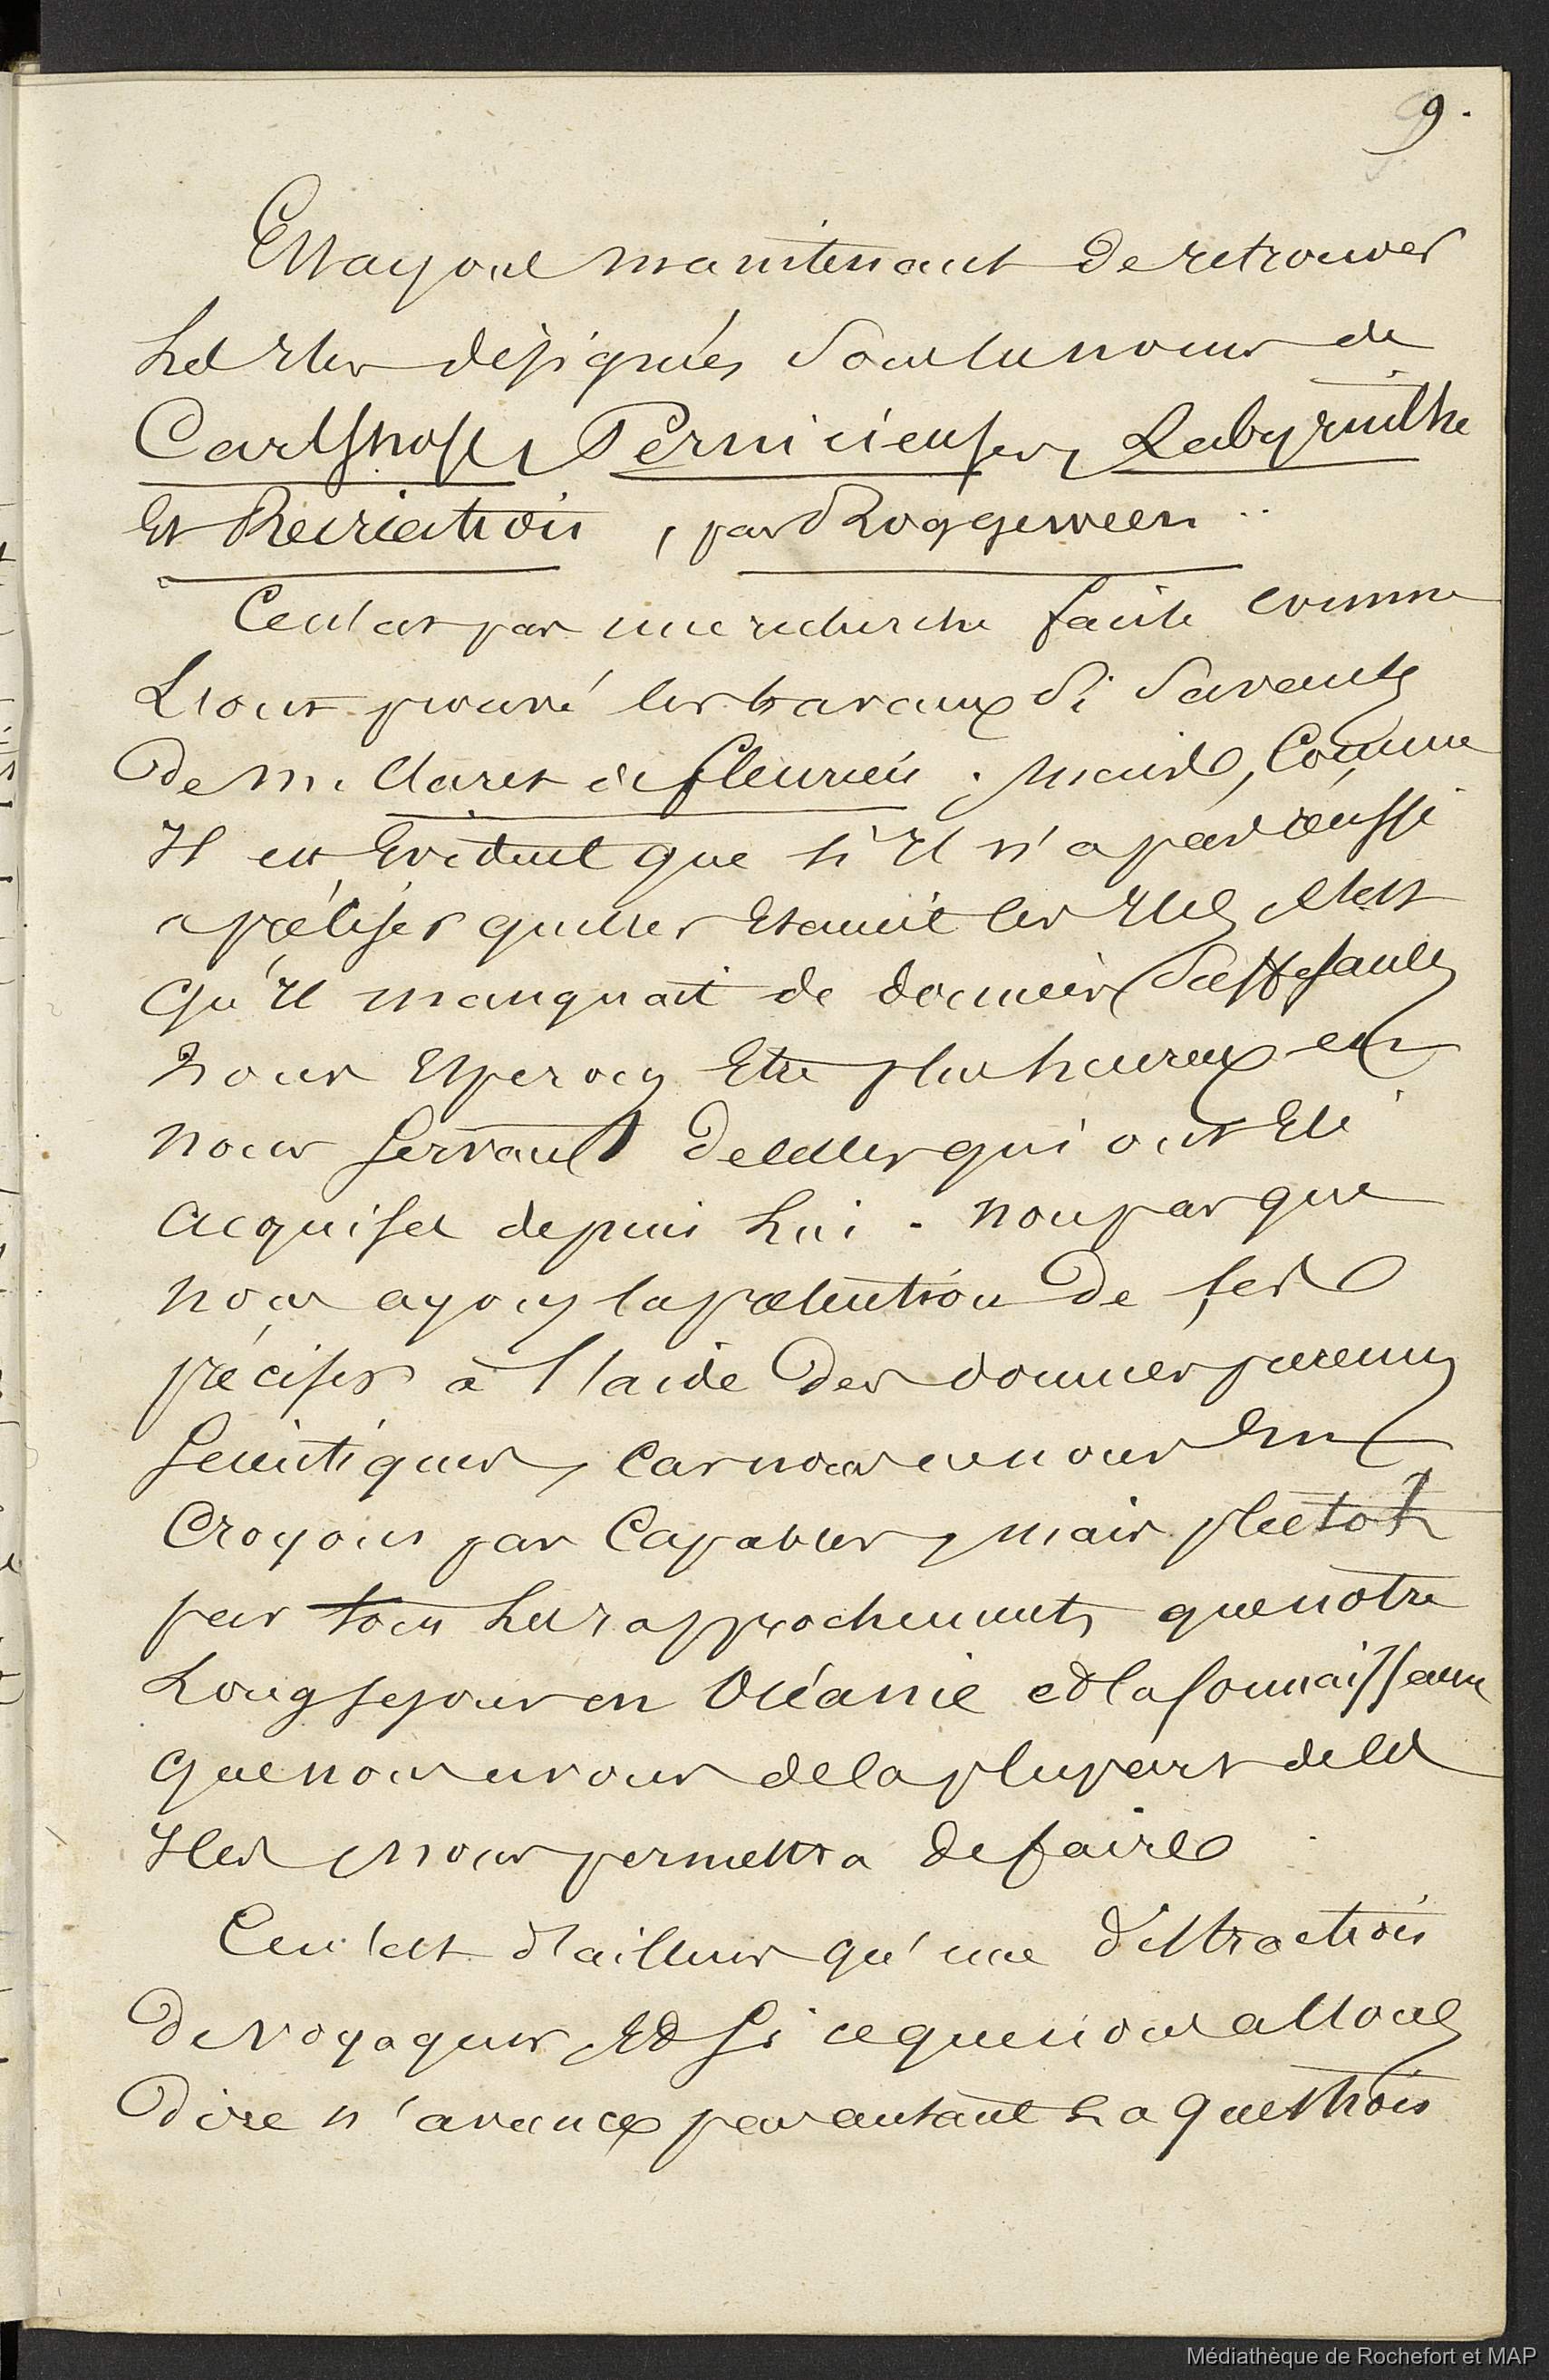 9.
Essayons maintenant de retrouver
Les Iles désignées sous le nom de
Carlshoff, Pernicieuses, Labyrinthe
Et Recréation, par Roggeween.
Ce n'est pas une recherche facile comme
L'ont prouvé les travaux si savants
De M. Claret de fleurieu. Mais, Comme
Il est Evident que s'Il n'a pas réussi
a préciser quelles Etaient les Iles, c'est
qu'Il manquait de données suffisantes
Nous Esperons Etre plus heureux en
nous servant de celles qui ont Eté
acquises depuis Lui. Non pas que
nous ayons la prétention de les
préciser à l'aide des données purement
scientiques, Car nous ne nous En
Croyons pas Capables, mais plutôt
par tous Les rapprochements que notre
Long sejour en Océanie et la connaissance
que nous avons de la plupart de les
Iles, nous permettra de faire
Ce n'est d'ailleurs qu'une distraction
De voyageur, Et si ce que nous allons
Dire n'avance pas autant La question
Médiathèque de Rochefort et MAP